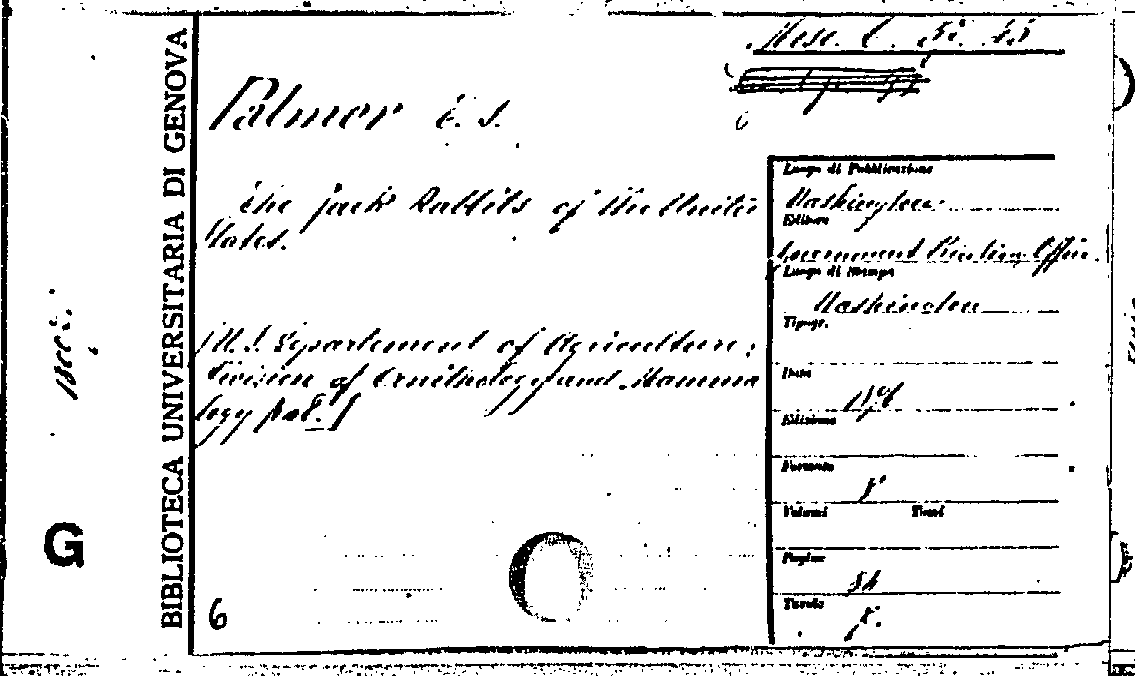 BIBLIOTECA UNIVERSITARIA DI GENOVA
G
Misc. C.
Palmer T. S.
The Jack Rabbits of the United
States.
(U. S. Departement of Agriculture:
Division of Ornithology and Mamma
logy
6
Luogo di Pubblicazione
Washington
Editore
Government Printing Office.
Luogo di Stampa
Washington
Tipogr.
Data
1896
Edizione
Formato
8°
Volumi Tomi
Pagine
84
Tavole